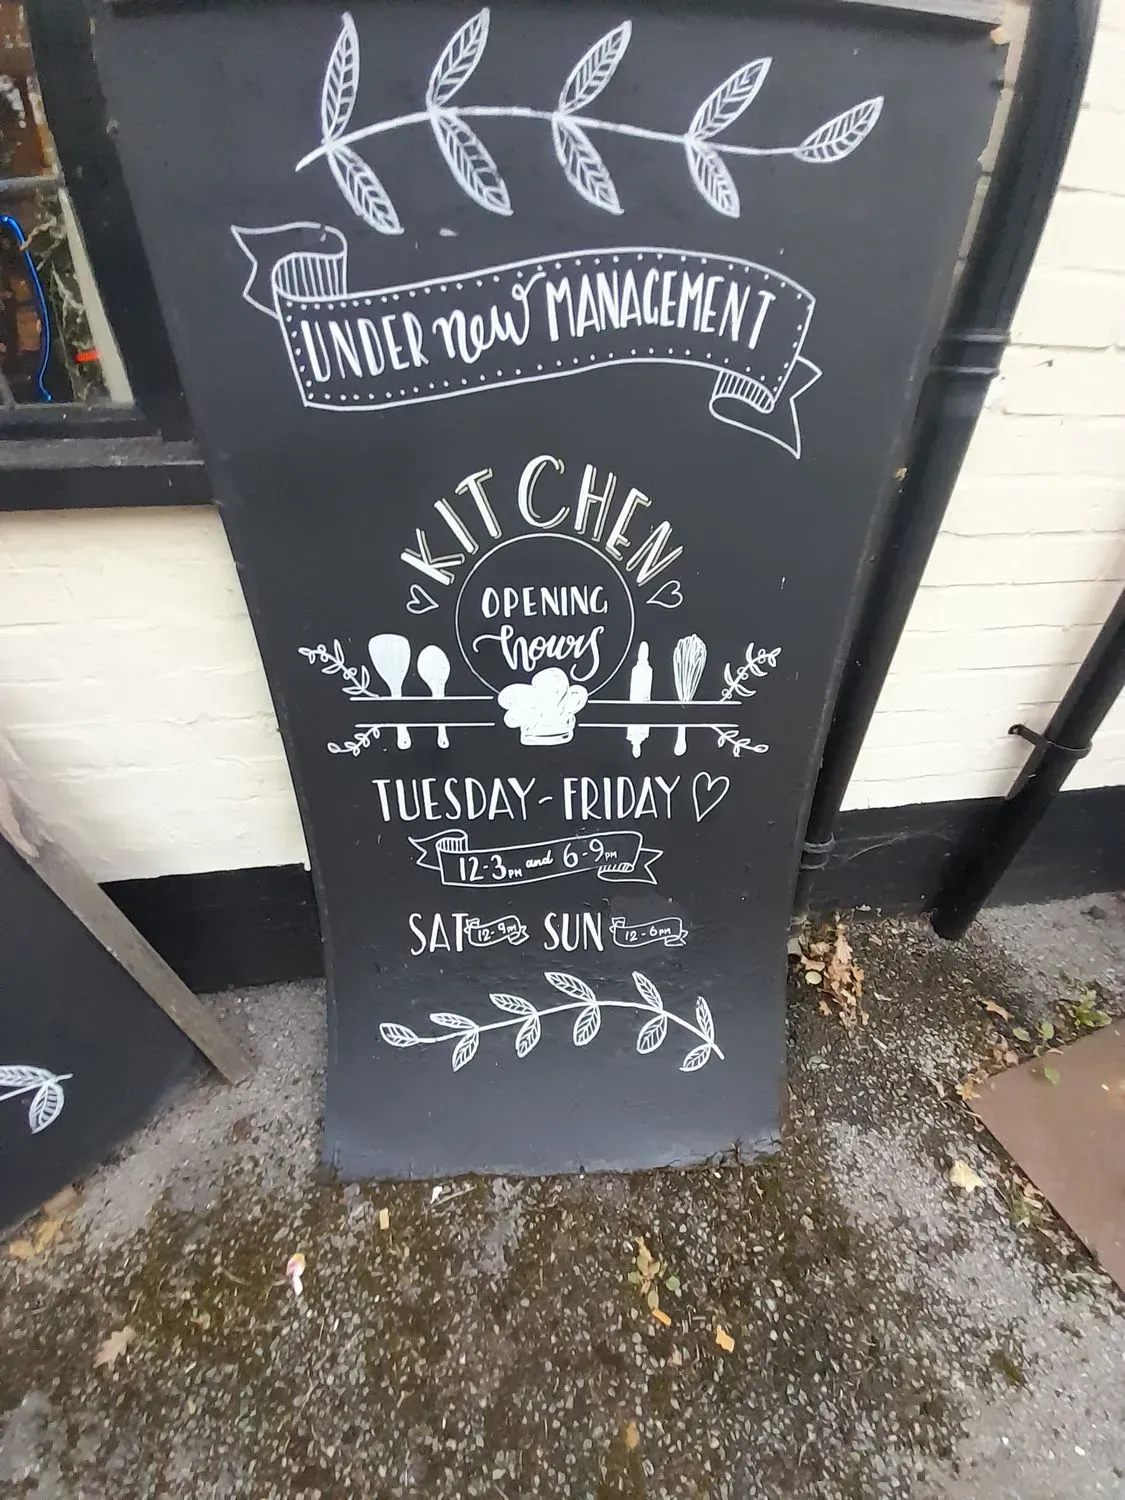 UNDER new MANAGEMENT
KITCHEN
OPENING
hours
TUESDAY-FRIDAY
12-3PM and 6-9PM
SAT 12-9PM SUN 12-6PM